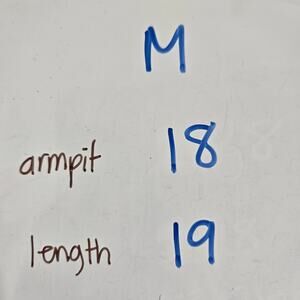 M
armpit 18
length 19